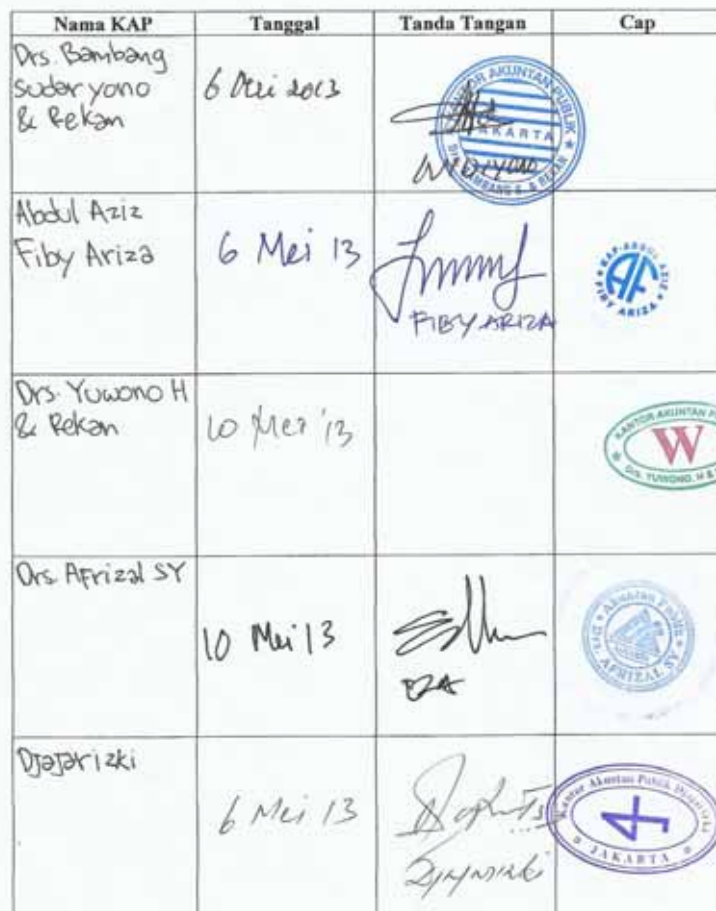 Nama KAP Tanggal Tanda Tangan Cap
Drs. Bambang
Sudaryono
& Rekan
6 Mei 2013
KANTOR AKUNTAN PUBLIK
JAKARTA
DRS. BAMBANG S. & REKAN
WIDIYONO
Abdul Aziz
Fiby Ariza
6 Mei 13
FIBY ARIZA
KAP-ABDUL AZIZ
AF
FIBY ARIZA
Drs. Yuwono H
& Rekan
10 Mei '13
KANTOR AKUNTAN P
W
Drs. YUWONO. H &
Drs. Afrizal SY
10 Mei 13
EZA
Akuntan Publik
Drs. AFRIZAL SY
Djajarizki
6 Mei 13
Djajarizki
Kantor Akuntan Publik Djajarizki
JAKARTA